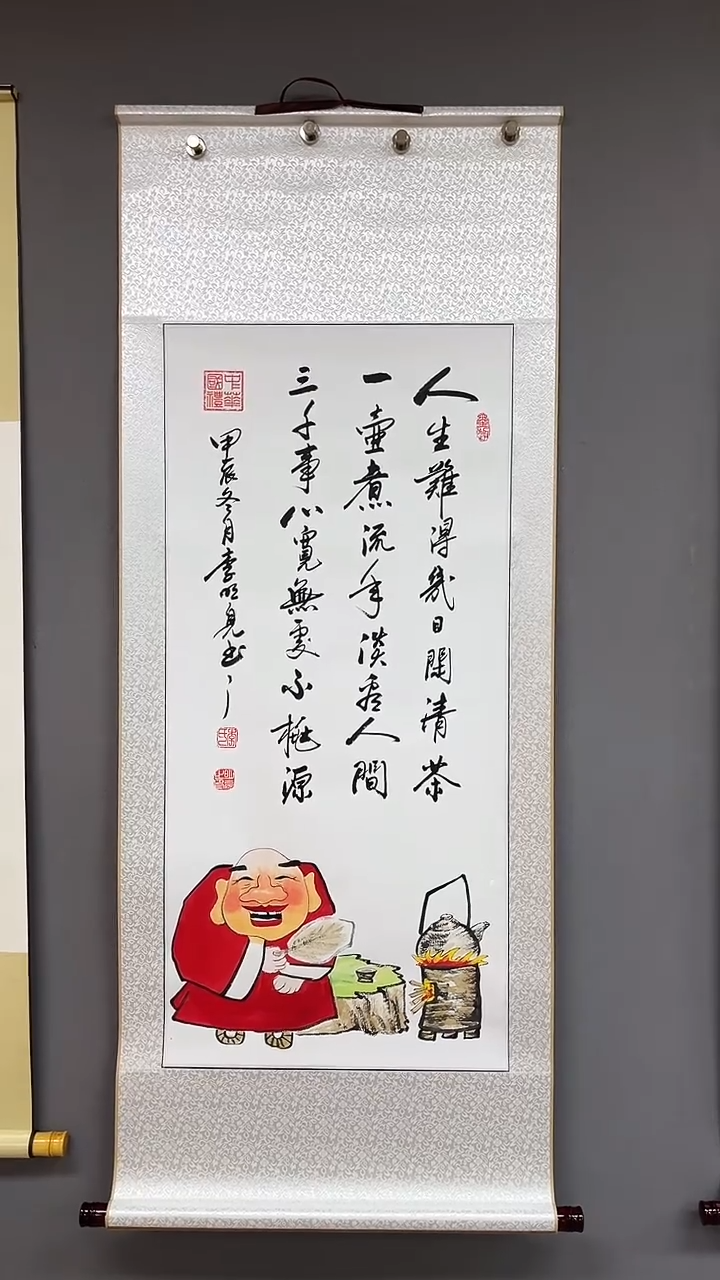 人生難得幾日閑清茶
一壺煮流年淡看人間
三千事心寬無處不桃源
中華國禮
甲辰冬月李明見书